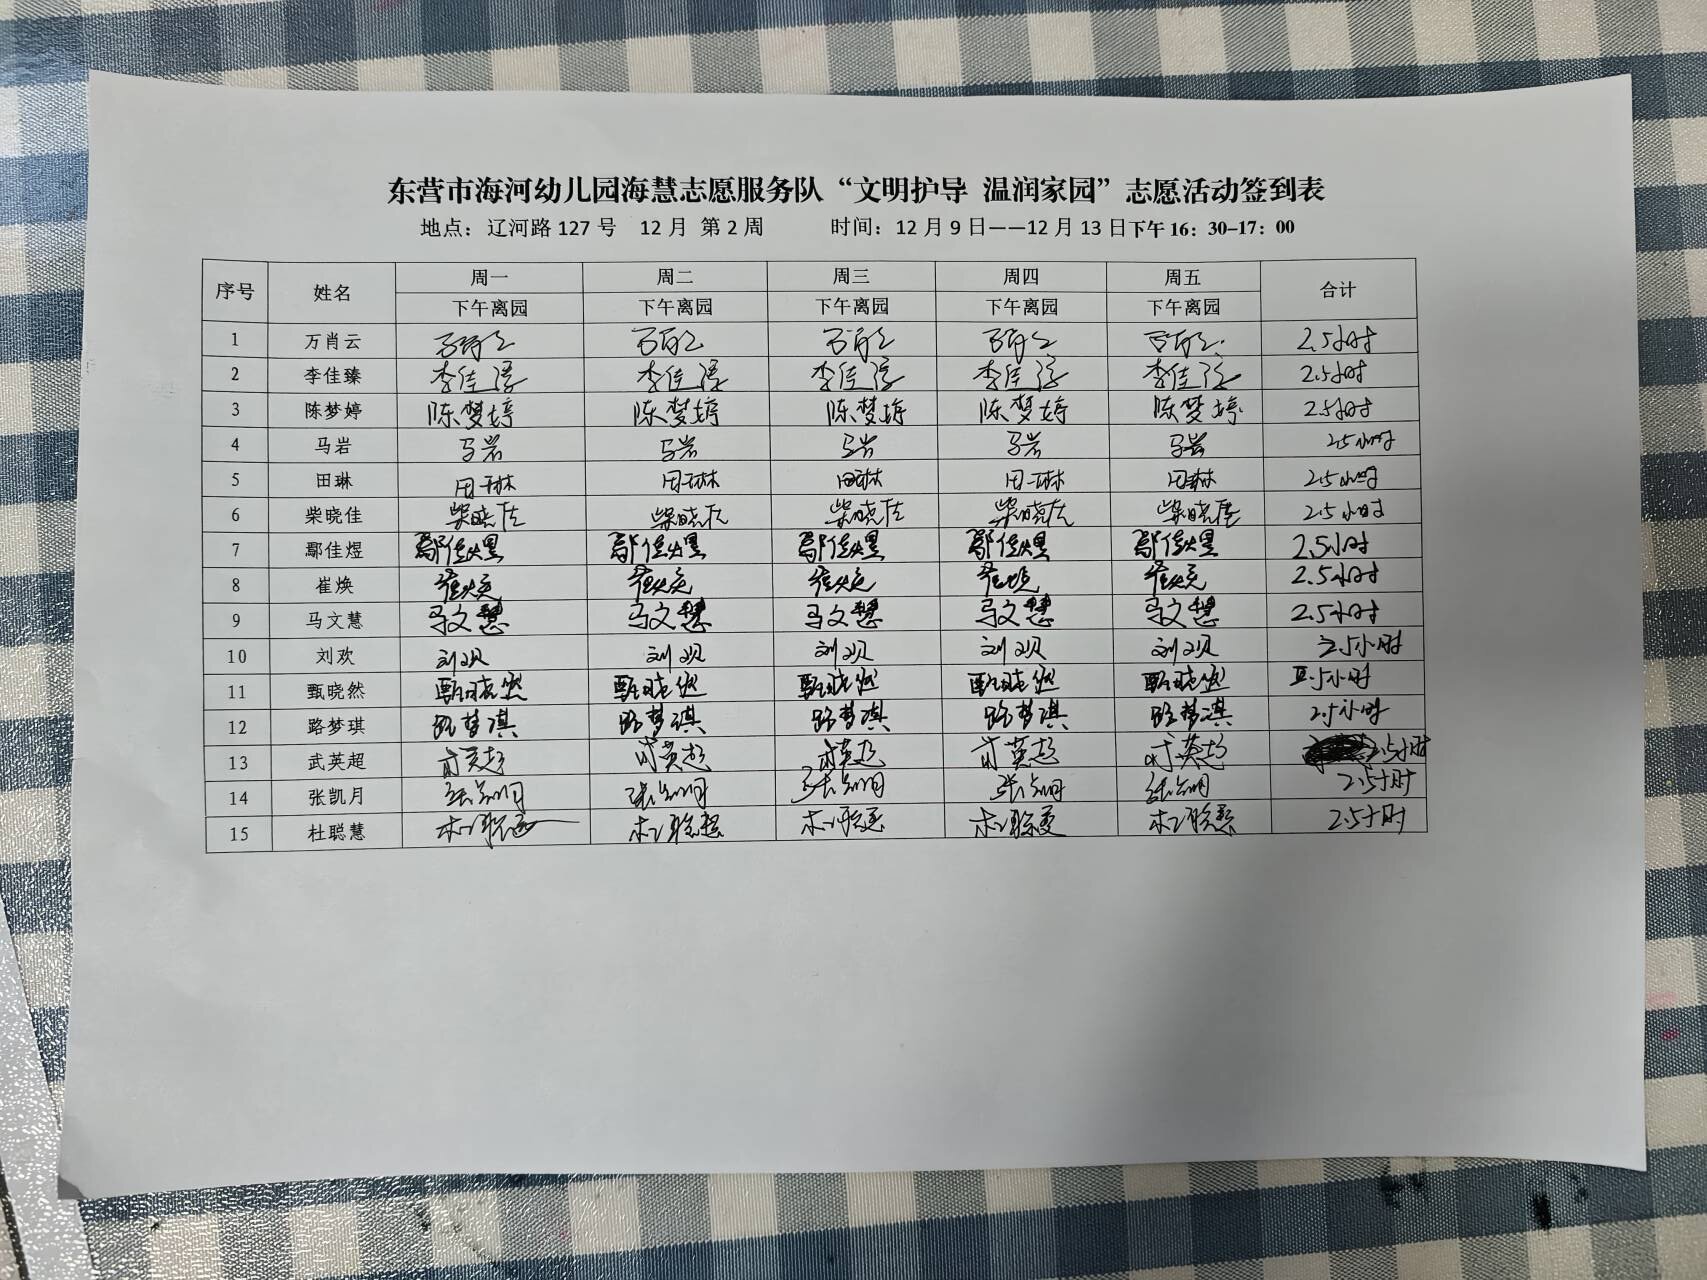 东营市海河幼儿园海慧志愿服务队“文明护导 温润家园”志愿活动签到表
地点：辽河路127号 12月 第2周 时间：12月9日——12月13日下午16：30-17：00
序号 姓名 周一 周二 周三 周四 周五 合计
下午离园 下午离园 下午离园 下午离园 下午离园
1 万肖云 万肖云 万肖云 万肖云 万肖云 万肖云 2.5小时
2 李佳臻 李佳臻 李佳臻 李佳臻 李佳臻 李佳臻 2.5小时
3 陈梦婷 陈梦婷 陈梦婷 陈梦婷 陈梦婷 陈梦婷 2.5小时
4 马岩 马岩 马岩 马岩 马岩 马岩 2.5小时
5 田琳 田琳 田琳 田琳 田琳 田琳 2.5小时
6 柴晓佳 柴晓佳 柴晓佳 柴晓佳 柴晓佳 柴晓佳 2.5小时
7 鄢佳煜 鄢佳煜 鄢佳煜 鄢佳煜 鄢佳煜 鄢佳煜 2.5小时
8 崔焕 崔焕 崔焕 崔焕 崔焕 崔焕 2.5小时
9 马文慧 马文慧 马文慧 马文慧 马文慧 马文慧 2.5小时
10 刘欢 刘欢 刘欢 刘欢 刘欢 刘欢 2.5小时
11 甄晓然 甄晓然 甄晓然 甄晓然 甄晓然 甄晓然 2.5小时
12 路梦琪 路梦琪 路梦琪 路梦琪 路梦琪 路梦琪 2.5小时
13 武英超 武英超 武英超 武英超 武英超 武英超 2.5小时
14 张凯月 张凯月 张凯月 张凯月 张凯月 张凯月 2.5小时
15 杜聪慧 杜聪慧 杜聪慧 杜聪慧 杜聪慧 杜聪慧 2.5小时